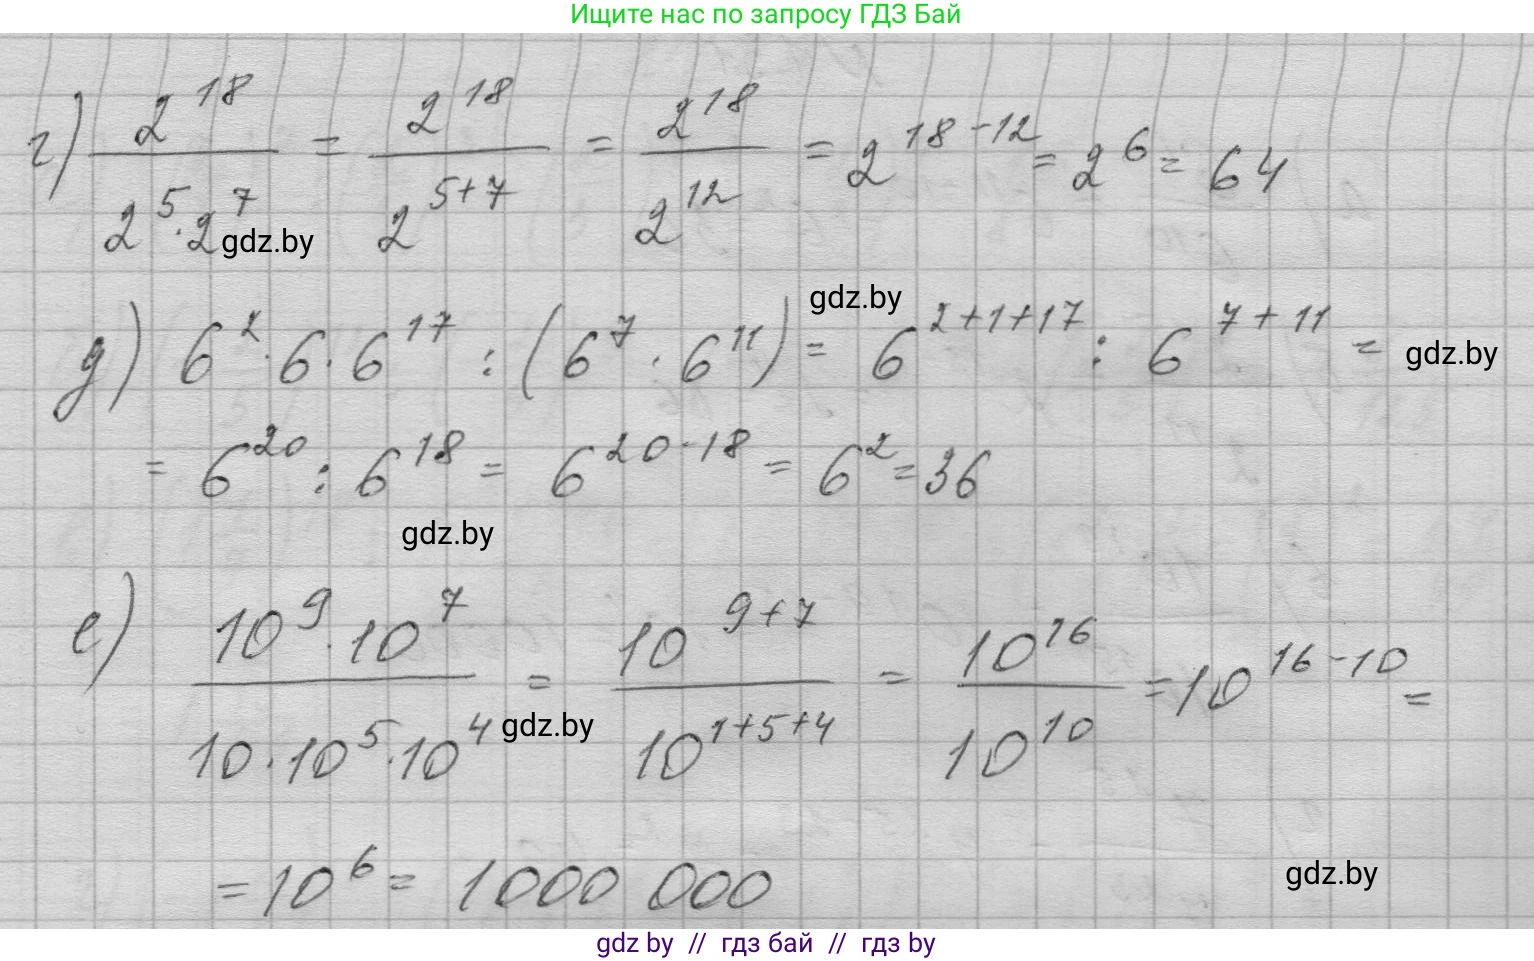 Ищите нас по запросу ГДЗ Бай
г) 2^18 / (2^5 · 2^7) = 2^18 / 2^(5+7) = 2^18 / 2^12 = 2^(18-12) = 2^6 = 64
gdz.by
gdz.by
д) 6^2 · 6 · 6^17 : (6^7 · 6^11) = 6^(2+1+17) : 6^(7+11) =
gdz.by
= 6^20 : 6^18 = 6^(20-18) = 6^2 = 36
gdz.by
е) (10^9 · 10^7) / (10 · 10^5 · 10^4) = 10^(9+7) / 10^(1+5+4) = 10^16 / 10^10 = 10^(16-10) =
gdz.by
= 10^6 = 1000 000
gdz.by
gdz by // гдз бай // гдз by